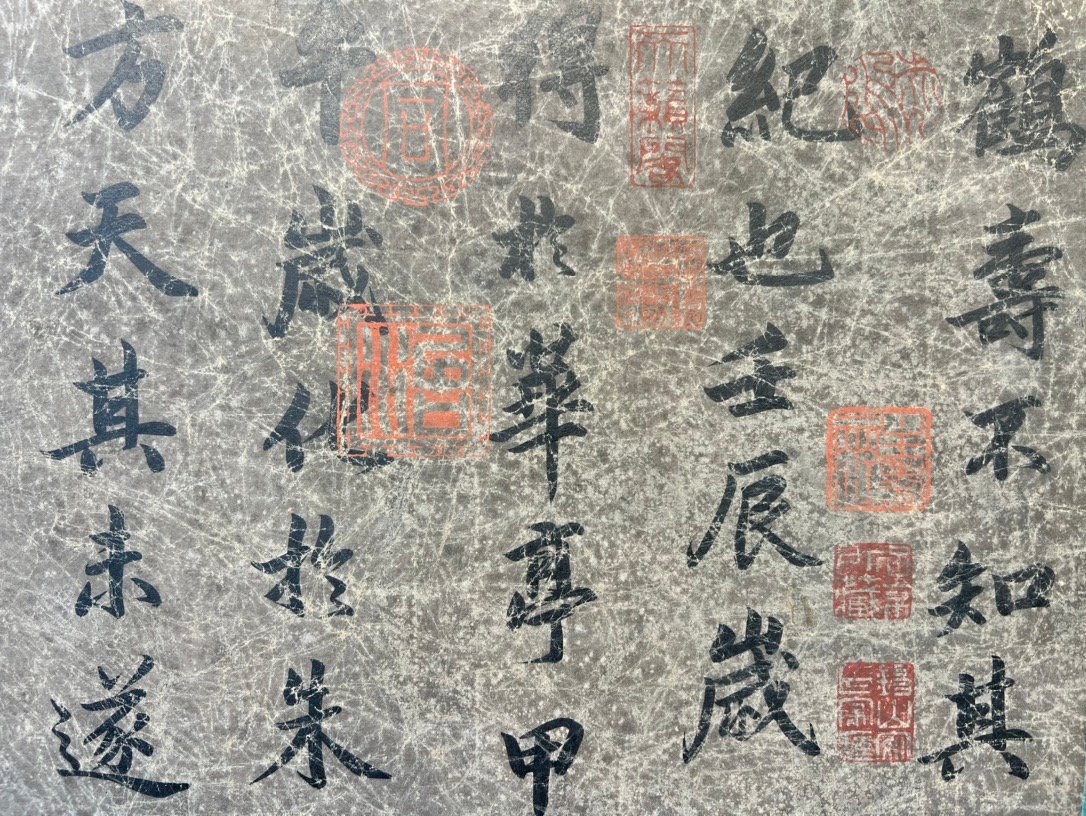 鶴壽不知其
紀也壬辰歲
得於華亭甲
午歲化於朱
方天其未遂